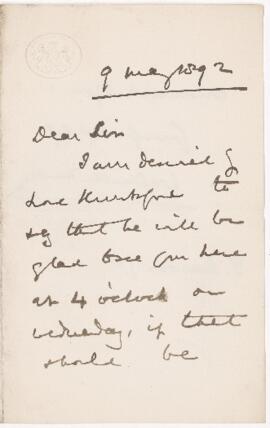 9 May 1892
Dear Sir
I am desired by
Lord Knutsford to
say that he will be
glad to see you here
at 4 o'clock on
Wednesday, if that
should be